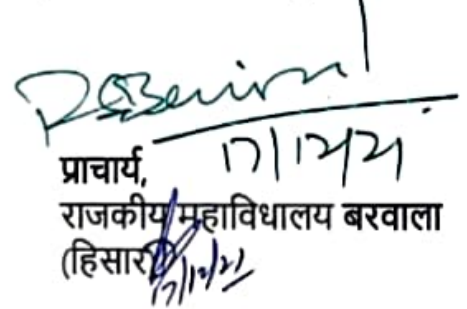 17/12/21
प्राचार्य,
राजकीय महाविधालय बरवाला
(हिसार)
17/12/21